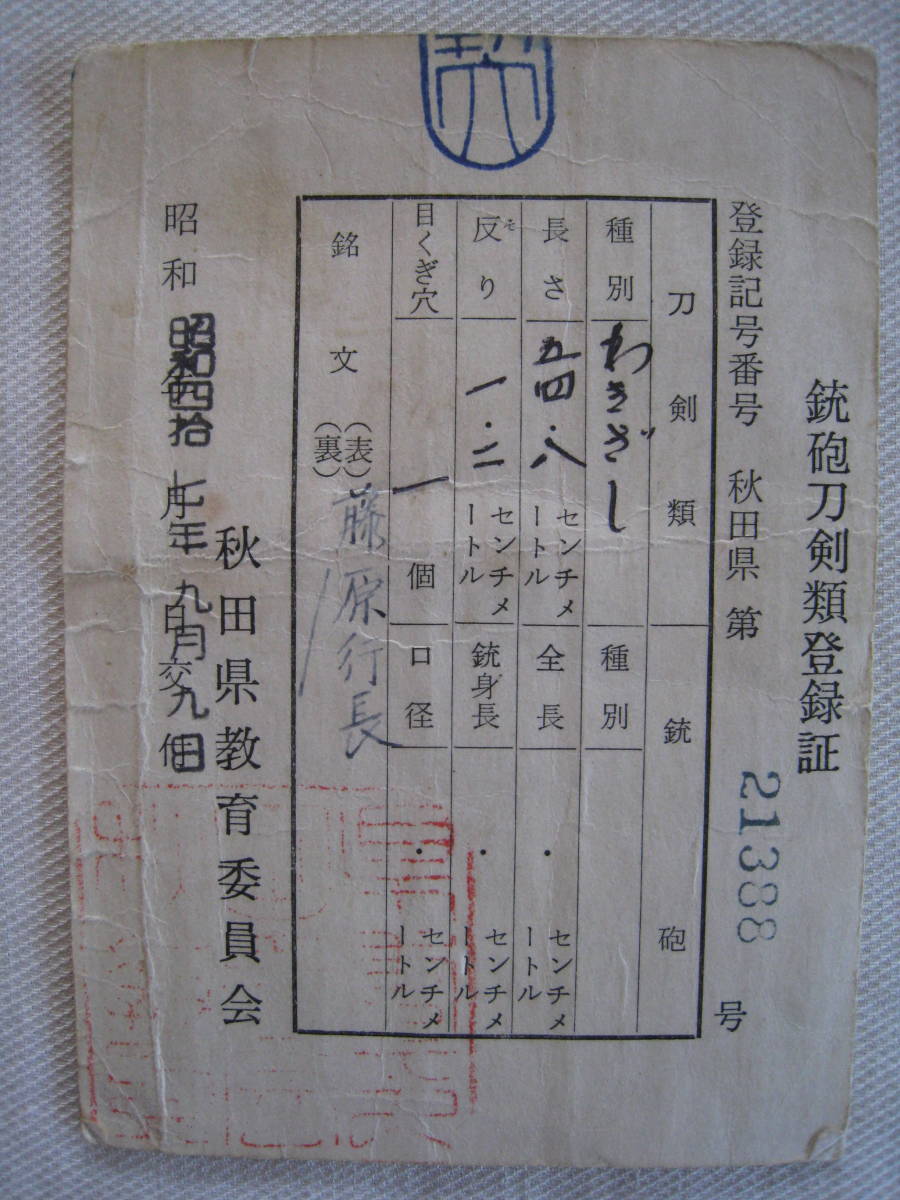 銃砲刀剣類登録証
登録記号番号 秋田県 第 21388 号
刀剣類
種別 わきざし
長さ 五四・八 センチメートル
反り 一・二 センチメートル
ソ
目くぎ穴 一 個
銃砲
種別
全長 ・ センチメートル
銃身長 ・ センチメートル
口径 ・ センチメートル
銘文 (表) 藤原行長
(裏)
秋田県教育委員会
昭和 年 月 日交付
昭和四拾 年九月九日